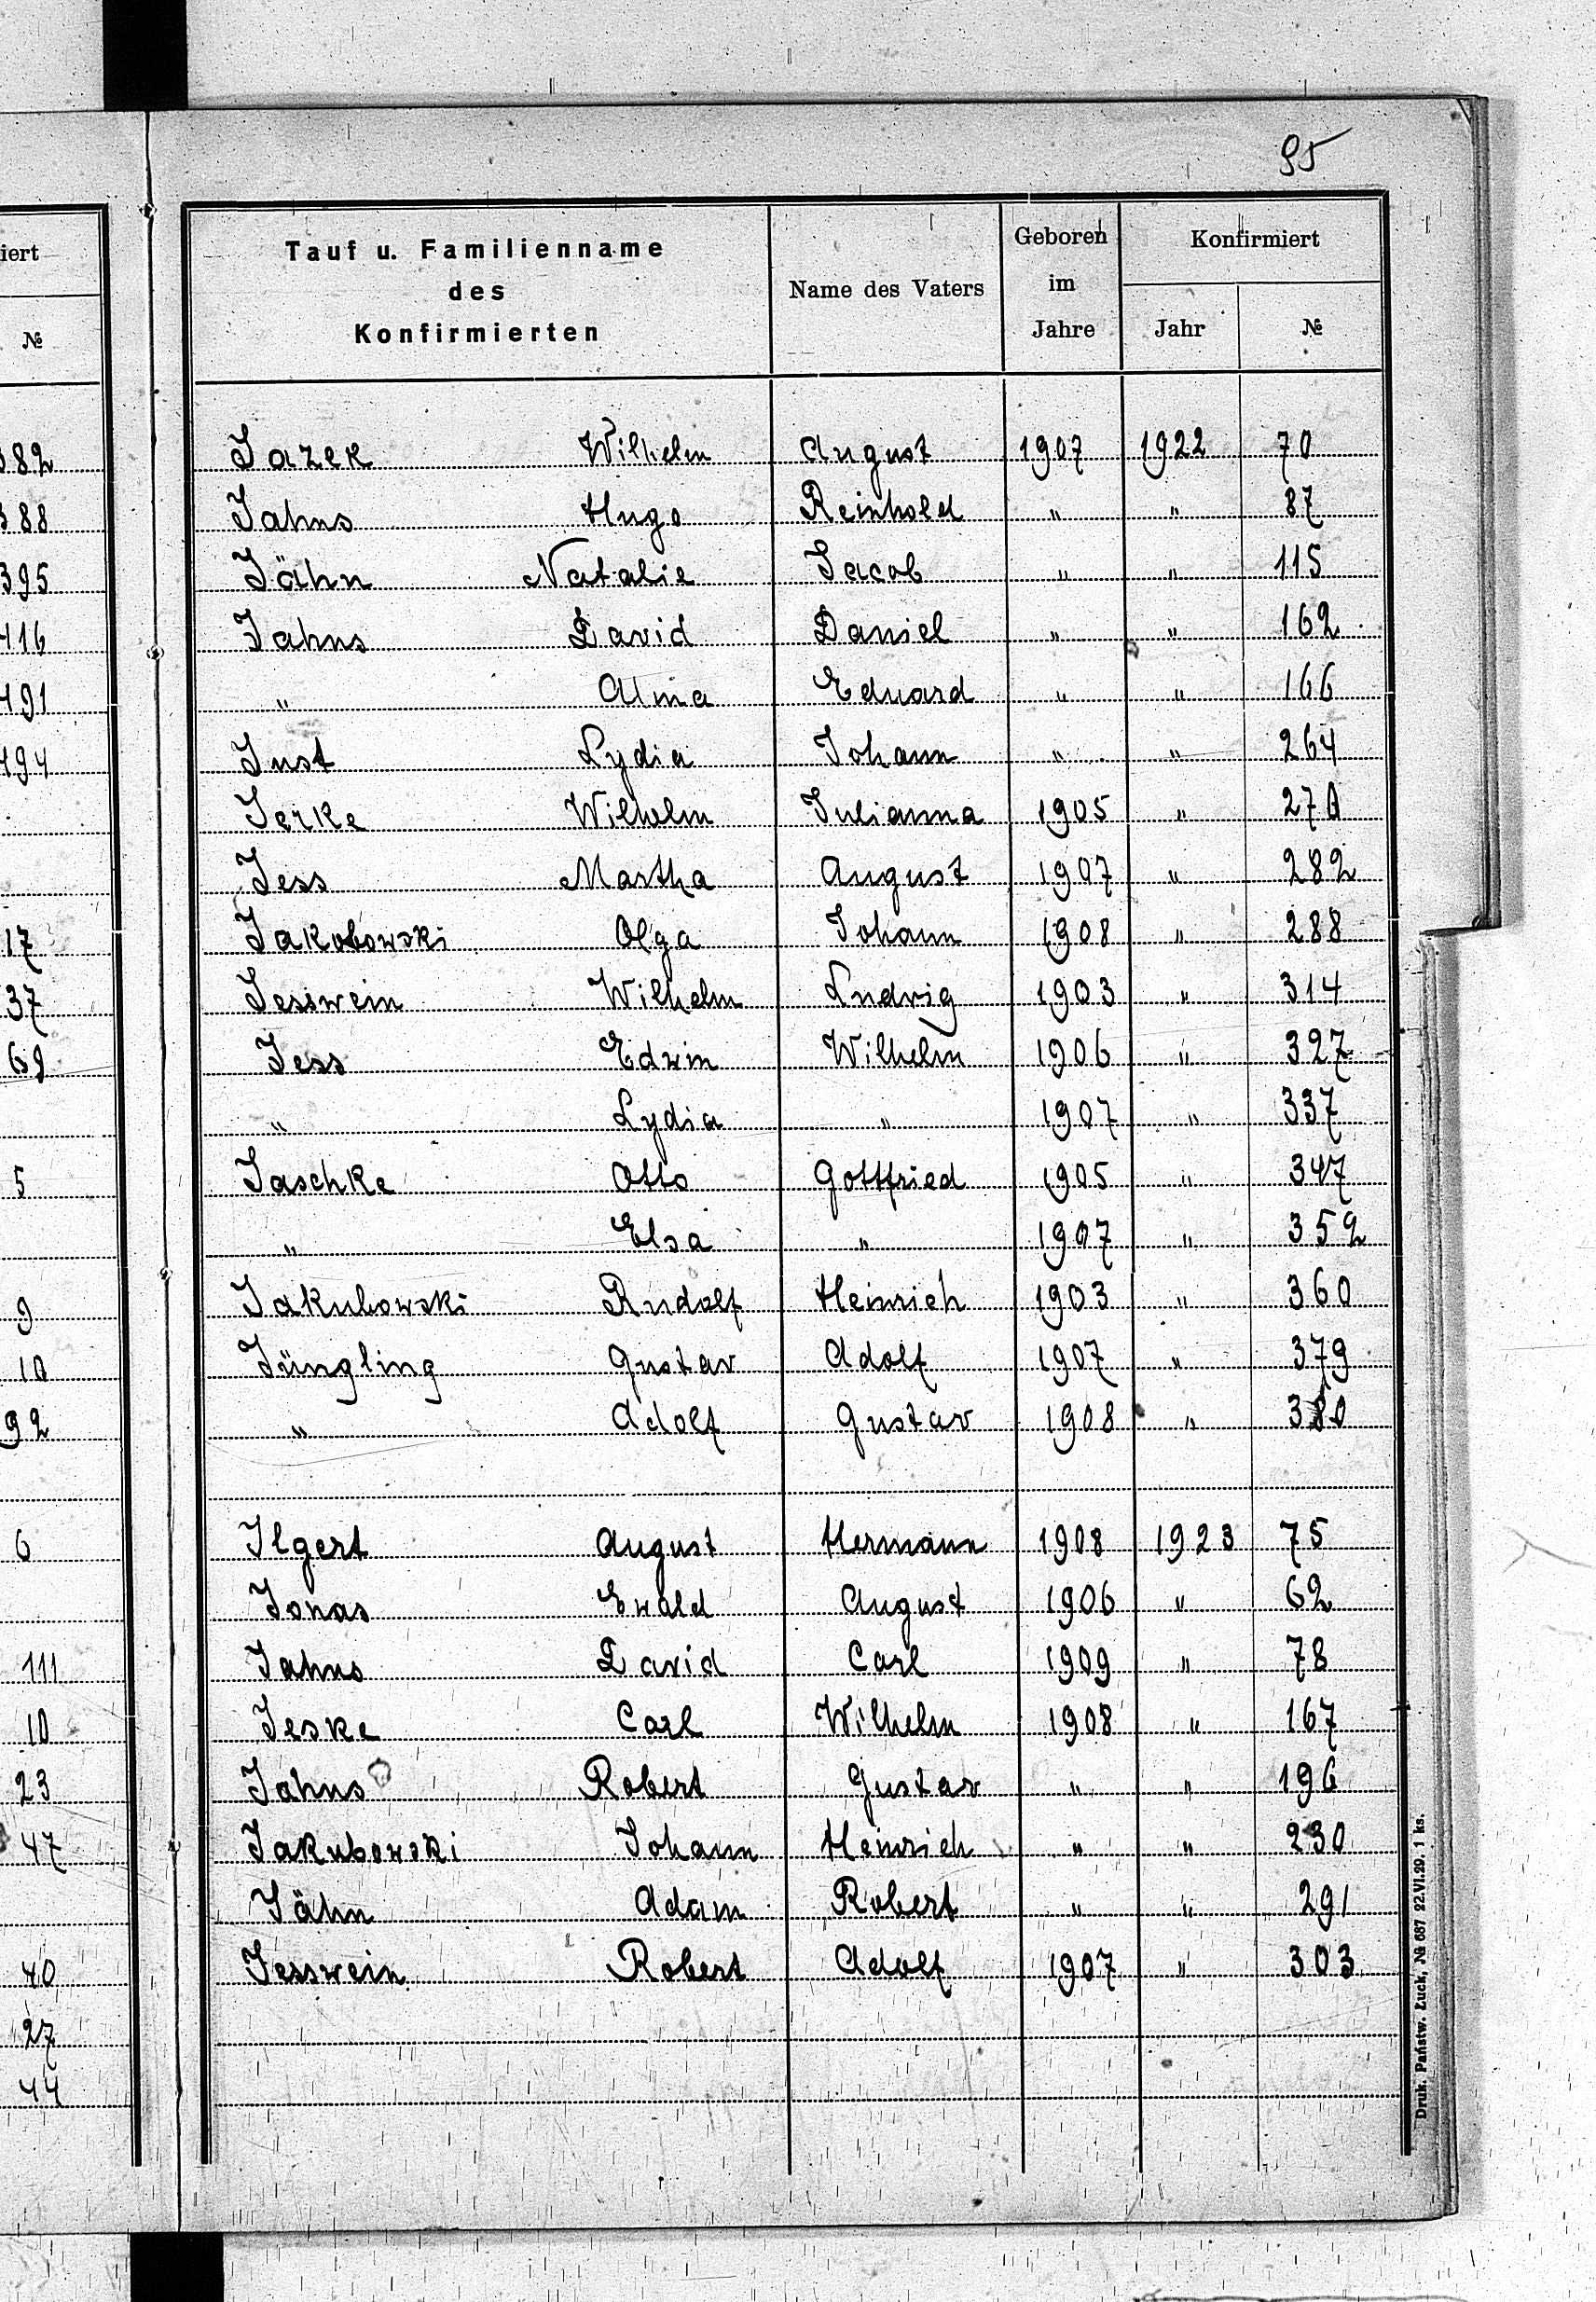 95
iert
№
382
388
395
416
491
494
17
37
69
5
9
10
92
6
111
10
23
47
40
27
44
Tauf u. Familienname
des
Konfirmierten
Name des Vaters
Geboren
im
Jahre
Konfirmiert
Jahr №
Jazek Wilhelm August 1907 1922 70
Jahns Hugo Reinhold " " 87
Jähn Natalie Jacob " " 115
Jahns David Daniel " " 162
" Alma Eduard " " 166
Just Lydia Johann " " 264
Jerke Wilhelm Julianna 1905 " 270
Jess Martha August 1907 " 282
Jakobowski Olga Johann 1908 " 288
Jesswein Wilhelm Ludwig 1903 " 314
Jess Edwin Wilhelm 1906 " 327
" Lydia " 1907 " 337
Jaschke Otto Gottfried 1905 " 347
" Elsa " 1907 " 352
Jakubowski Rudolf Heinrich 1903 " 360
Jüngling Gustav Adolf 1907 " 379
" Adolf Gustav 1908 " 380
Ilgert August Hermann 1908 1923 75
Jonas Ewald August 1906 " 62
Jahns David Carl 1909 " 78
Jeske Carl Wilhelm 1908 " 167
Jahns Robert Gustav " " 196
Jakubowski Johann Heinrich " " 230
Jähn Adam Robert " " 291
Jesswein Robert Adolf 1907 " 303
Druk. Państw. Łuck, № 687 22.VI.29. 1 ks.